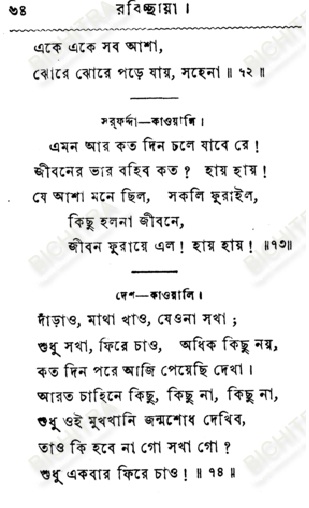 ৬৪ রবিচ্ছায়া।
একে একে সব আশা,
ঝোরে ঝোরে পড়ে যায়, সহেনা॥ ৭২॥
সর্ফর্দ্দা—কাওয়ালি।
এমন আর কত দিন চলে যাবে রে!
জীবনের ভার বহিব কত? হায় হায়!
যে আশা মনে ছিল, সকলি ফুরাইল,
কিছু হলনা জীবনে,
জীবন ফুরায়ে এল! হায় হায়! ॥৭৩॥
দেশ—কাওয়ালি।
দাঁড়াও, মাথা খাও, যেওনা সখা;
শুধু সখা, ফিরে চাও, অধিক কিছু নয়,
কত দিন পরে আজি পেয়েছি দেখা।
আরত চাহিনে কিছু, কিছু না, কিছু না,
শুধু ওই মুখখানি জন্মশোধ দেখিব,
তাও কি হবে না গো সখা গো?
শুধু একবার ফিরে চাও!॥ ৭৪॥
BICHITRA